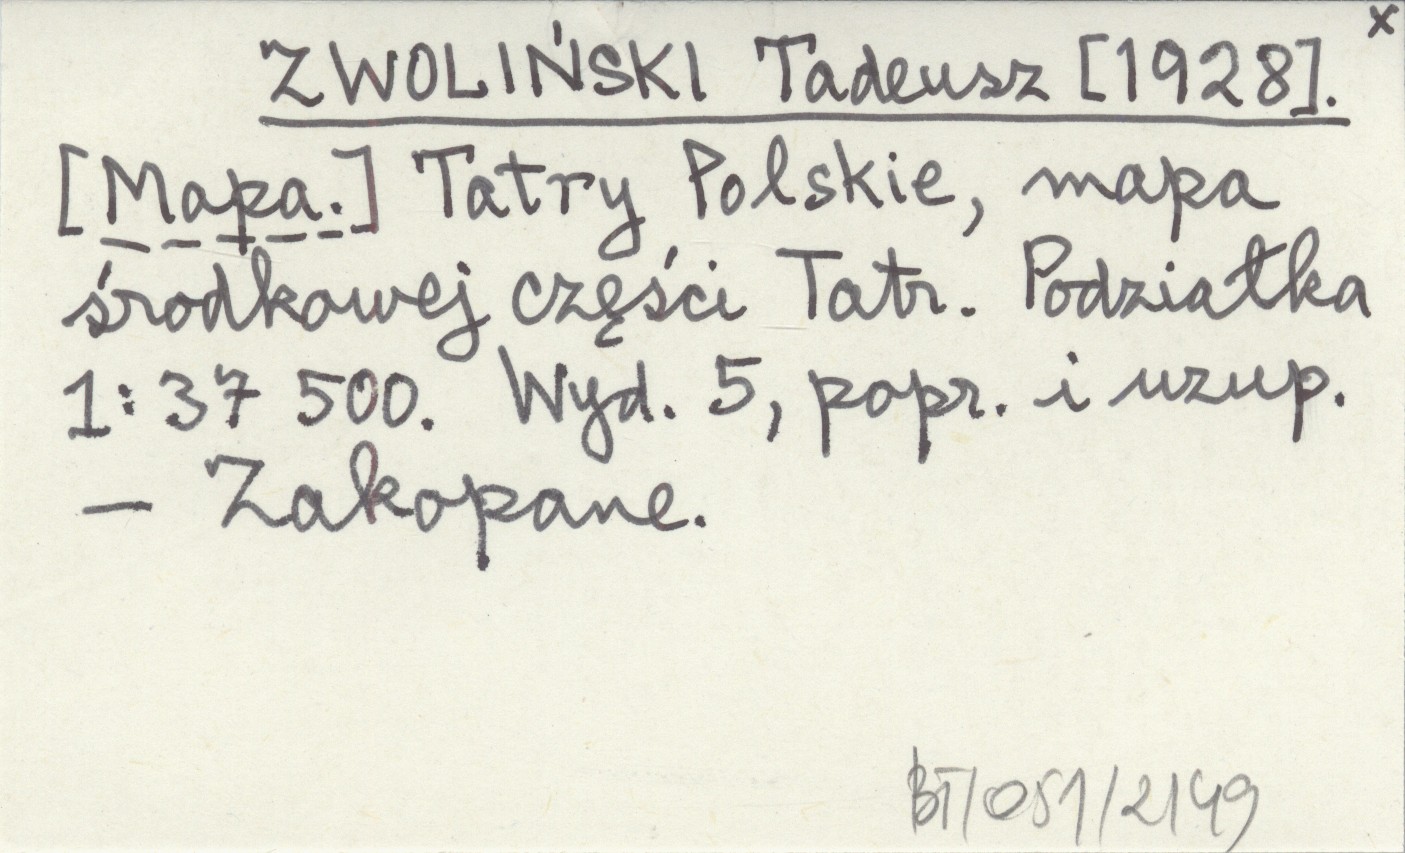 x
ZWOLIŃSKI Tadeusz [1928].
[Mapa.] Tatry Polskie, mapa
środkowej części Tatr. Podziałka
1:37 500. Wyd. 5, popr. i uzup.
— Zakopane.
BT/051/2149